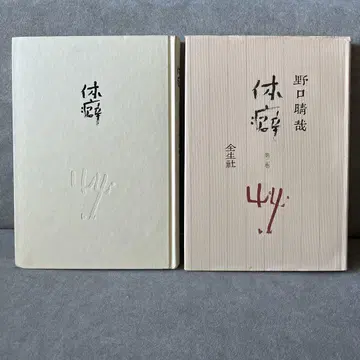 体癖
野口晴哉
体癖
第一巻
全生社